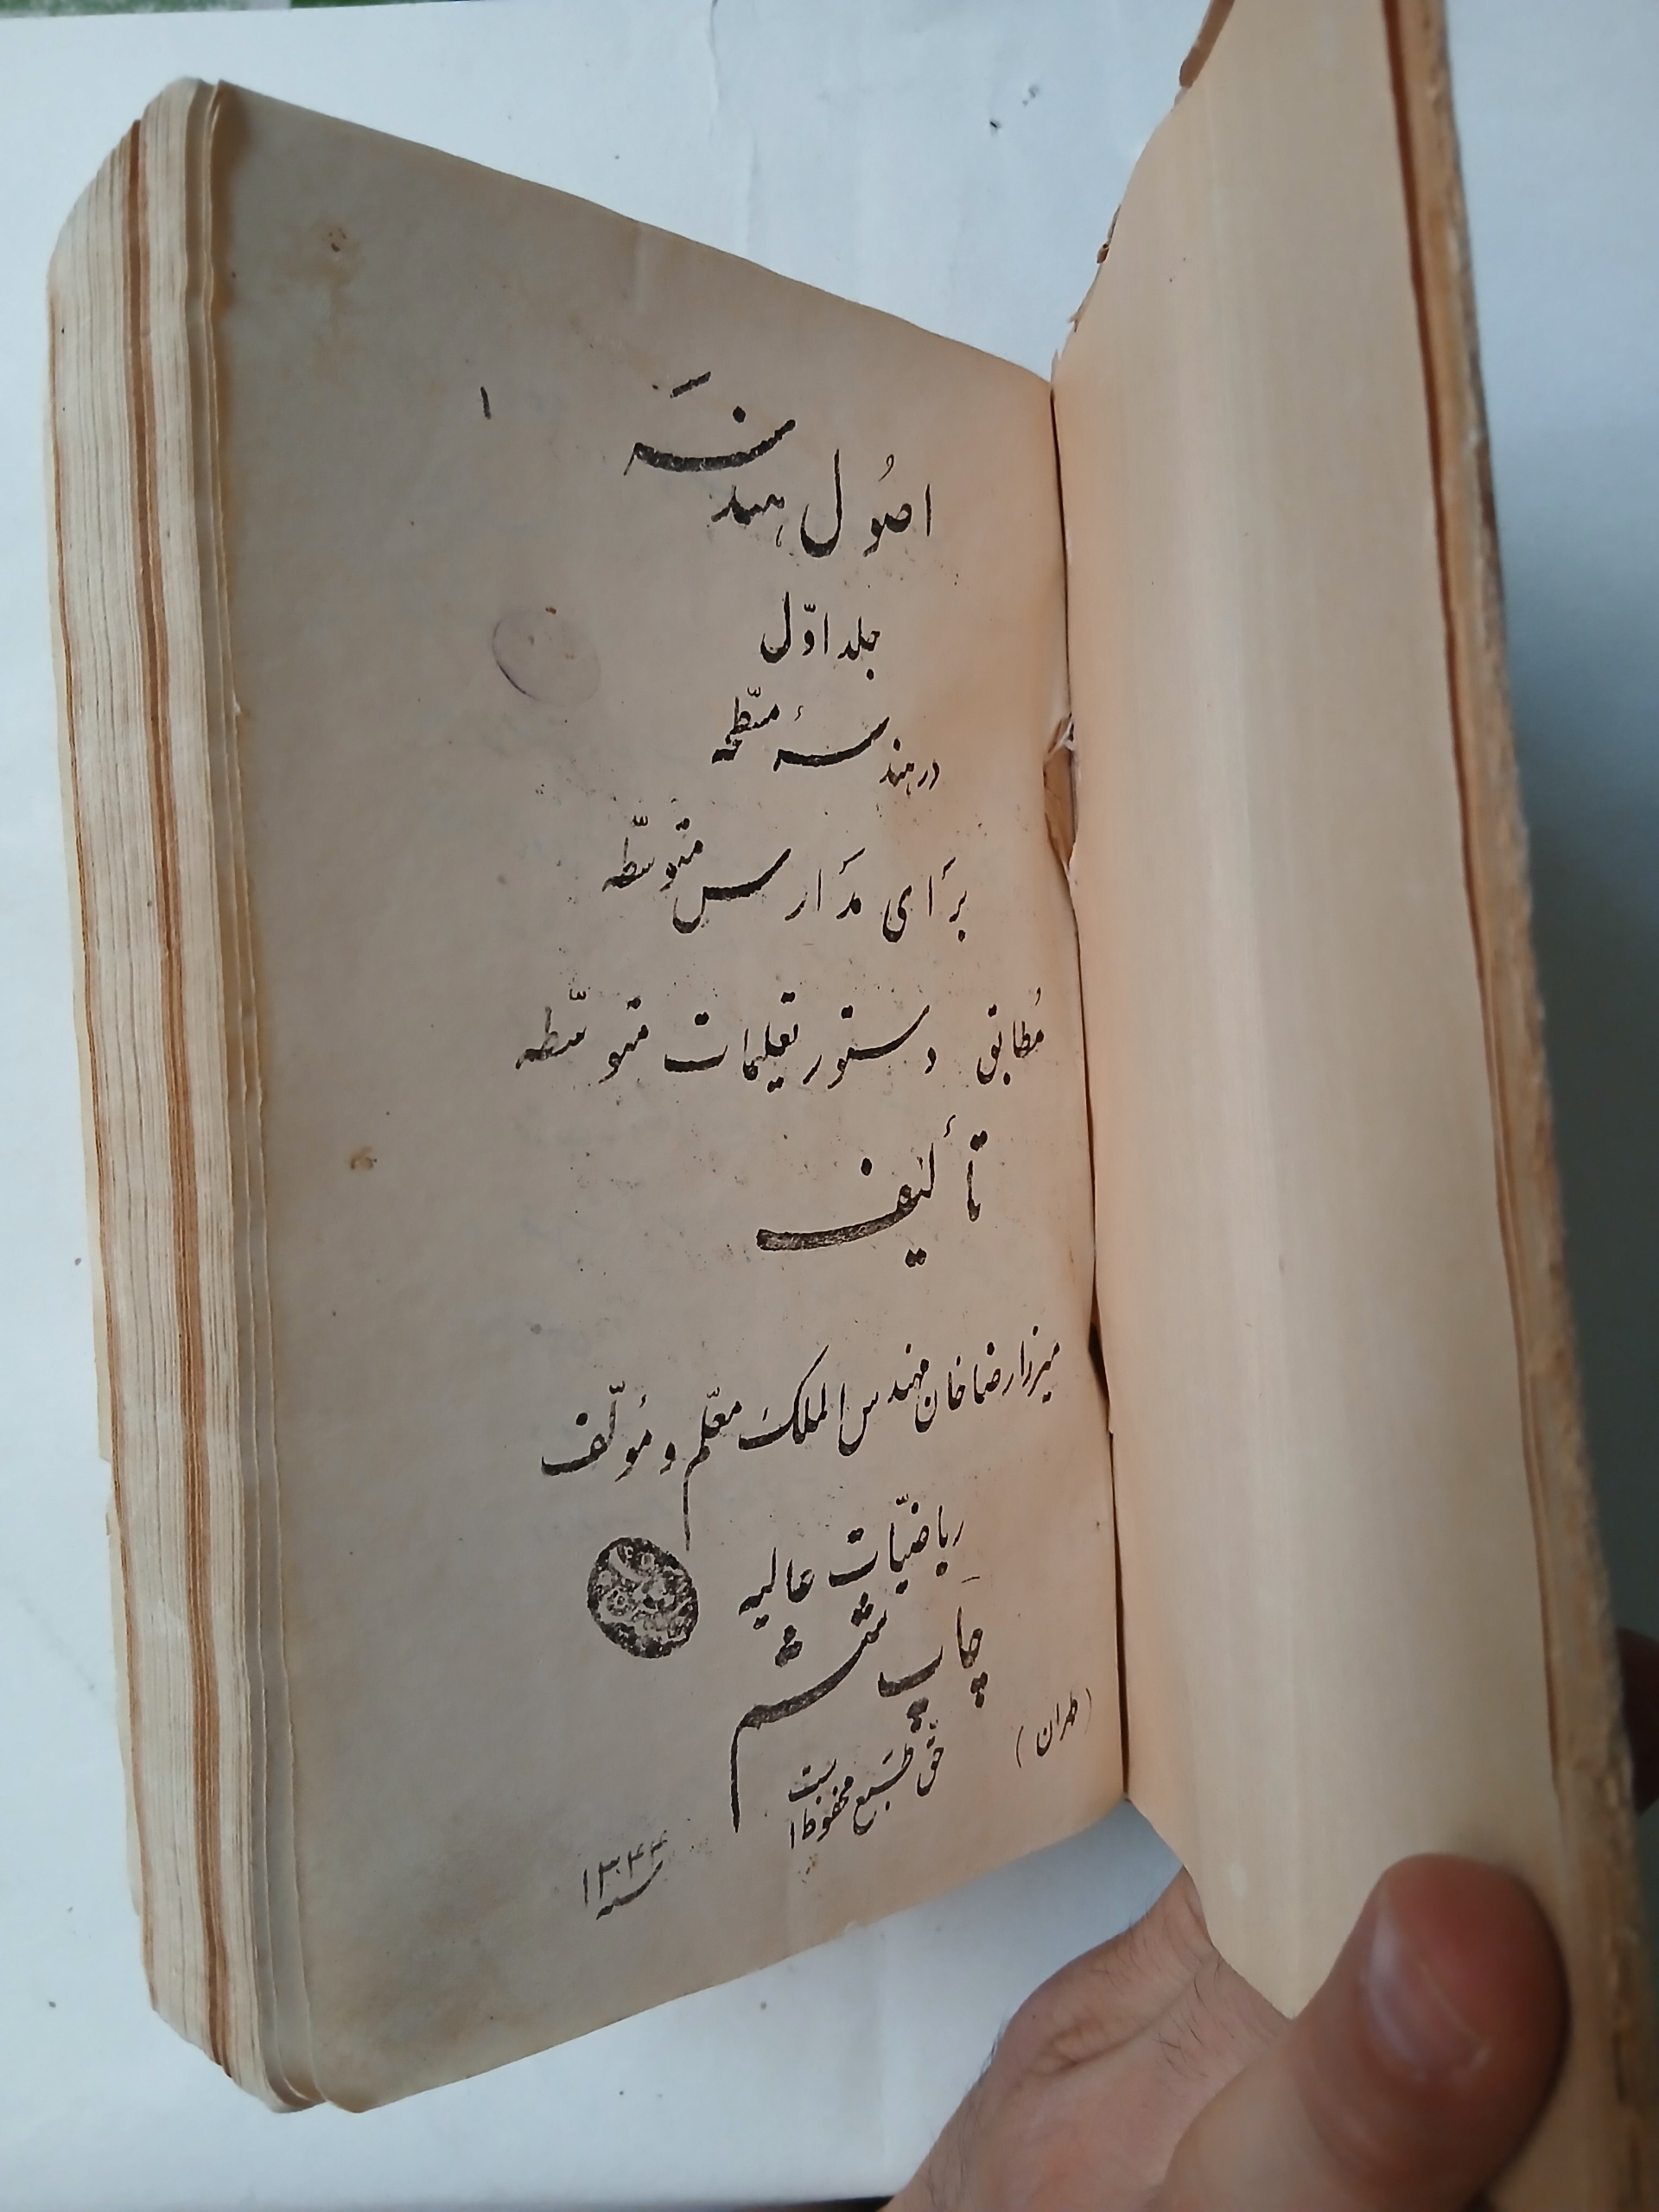 ۱
اصُول هندسَه
جلد اوّل
در هندسهٔ مسطّحه
برَای مدَارس متوسّطه
مُطابق دستور تعلیمات متوسّطه
تألیف
میرزا رضا خان مهندس الملک معلّم و مؤلّف
ریاضیّات عالیه
چاپ ششم
(طهران)
حقّ طبع محفوظ است
سنه ۱۳۴۴